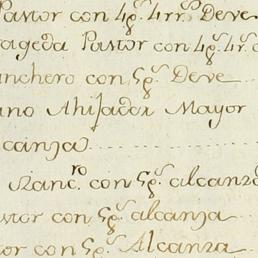 Pastor con 4p.s 4rr.s Deve
rageda Pastor con 4p.s 4r.s
anchero con 5p.s Deve
ano Ahijador Mayor
canza
Ranc.ro con 5p.s alcanza
stor con 5p.s alcanza
or con 5p.s Alcanza